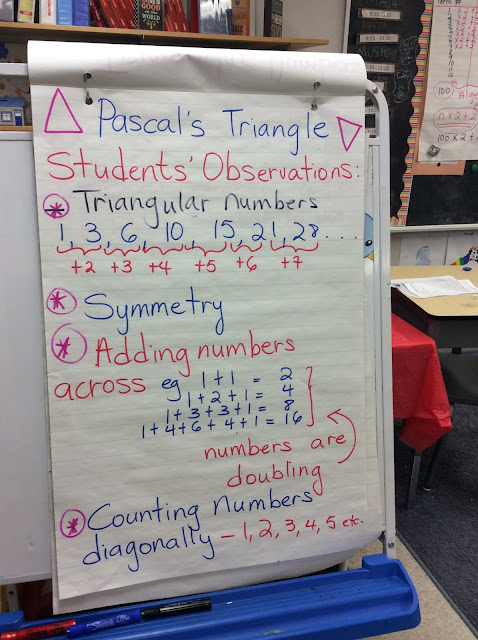 Pascal's Triangle
Students' Observations:
* Triangular numbers
1, 3, 6, 10, 15, 21, 28 ...
+2 +3 +4 +5 +6 +7
* Symmetry
* Adding numbers
across eg 1 + 1 = 2
1 + 2 + 1 = 4
1 + 3 + 3 + 1 = 8
1 + 4 + 6 + 4 + 1 = 16
numbers are
doubling
* Counting Numbers
diagonally - 1, 2, 3, 4, 5 etc.